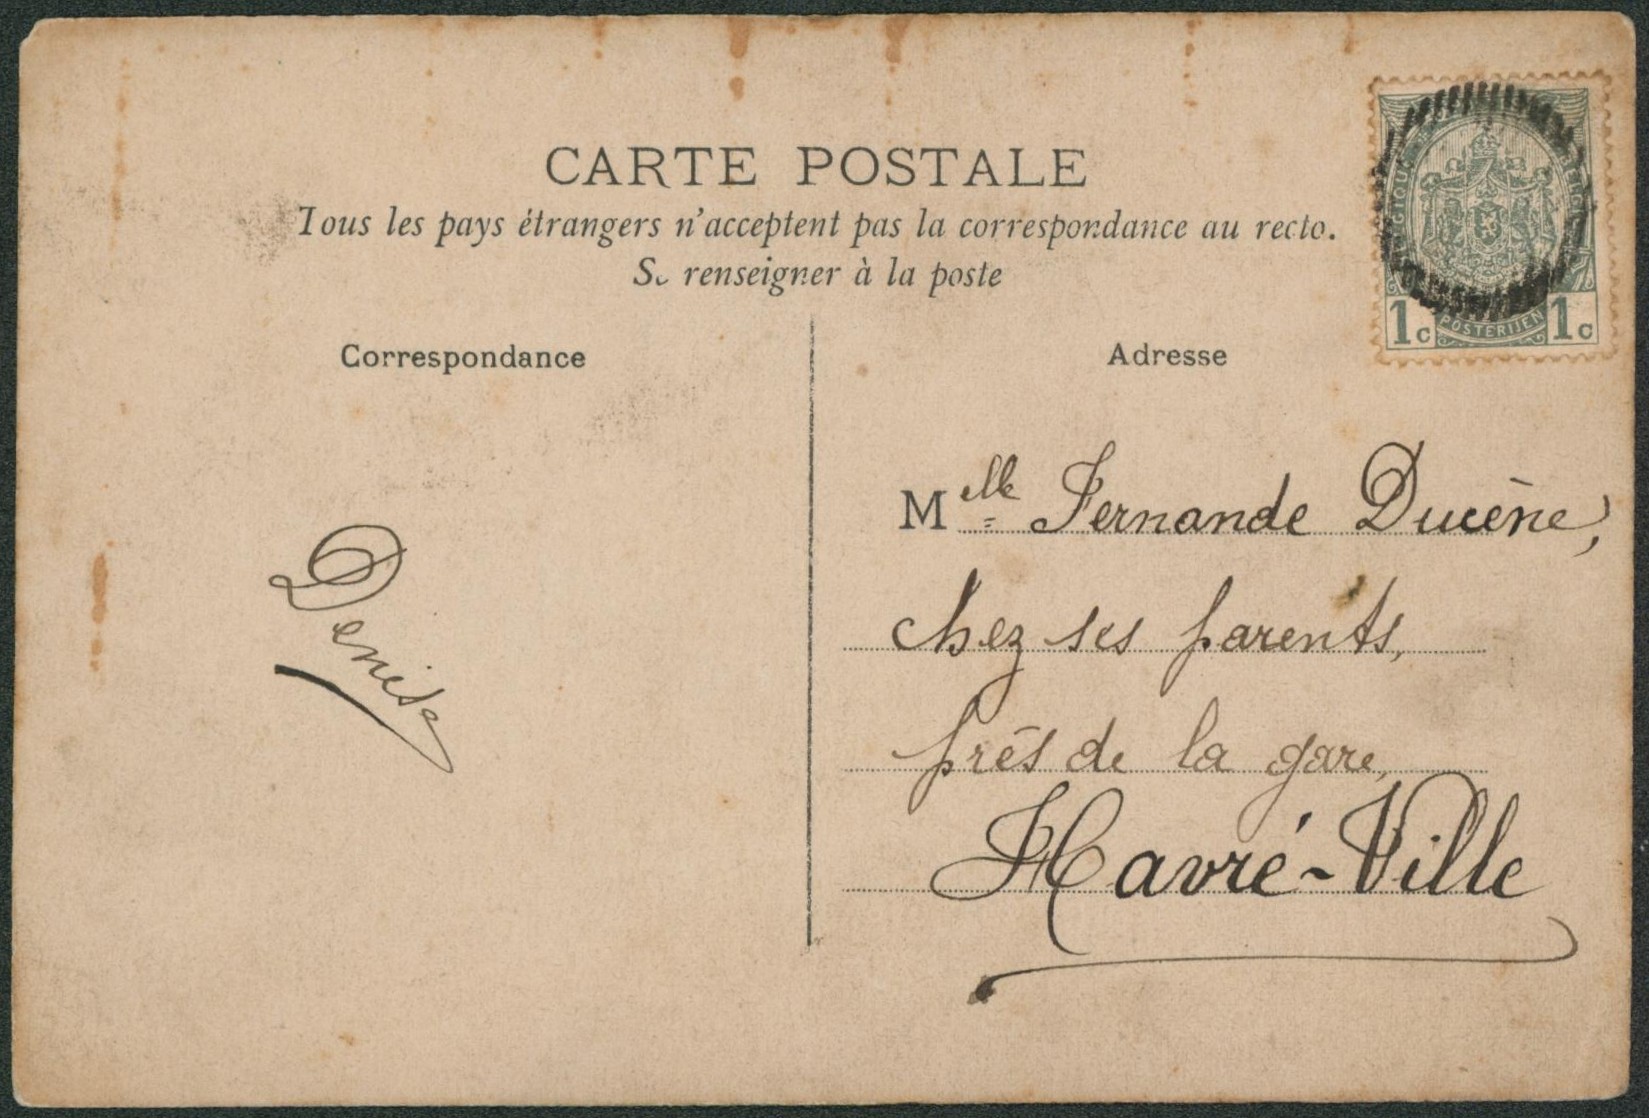 CARTE POSTALE
Tous les pays étrangers n'acceptent pas la correspondance au recto.
Se renseigner à la poste
1c POSTERIJEN 1c
Correspondance
Adresse
Denise
Melle Fernande Ducène,
chez ses parents,
près de la gare,
Havré-Ville